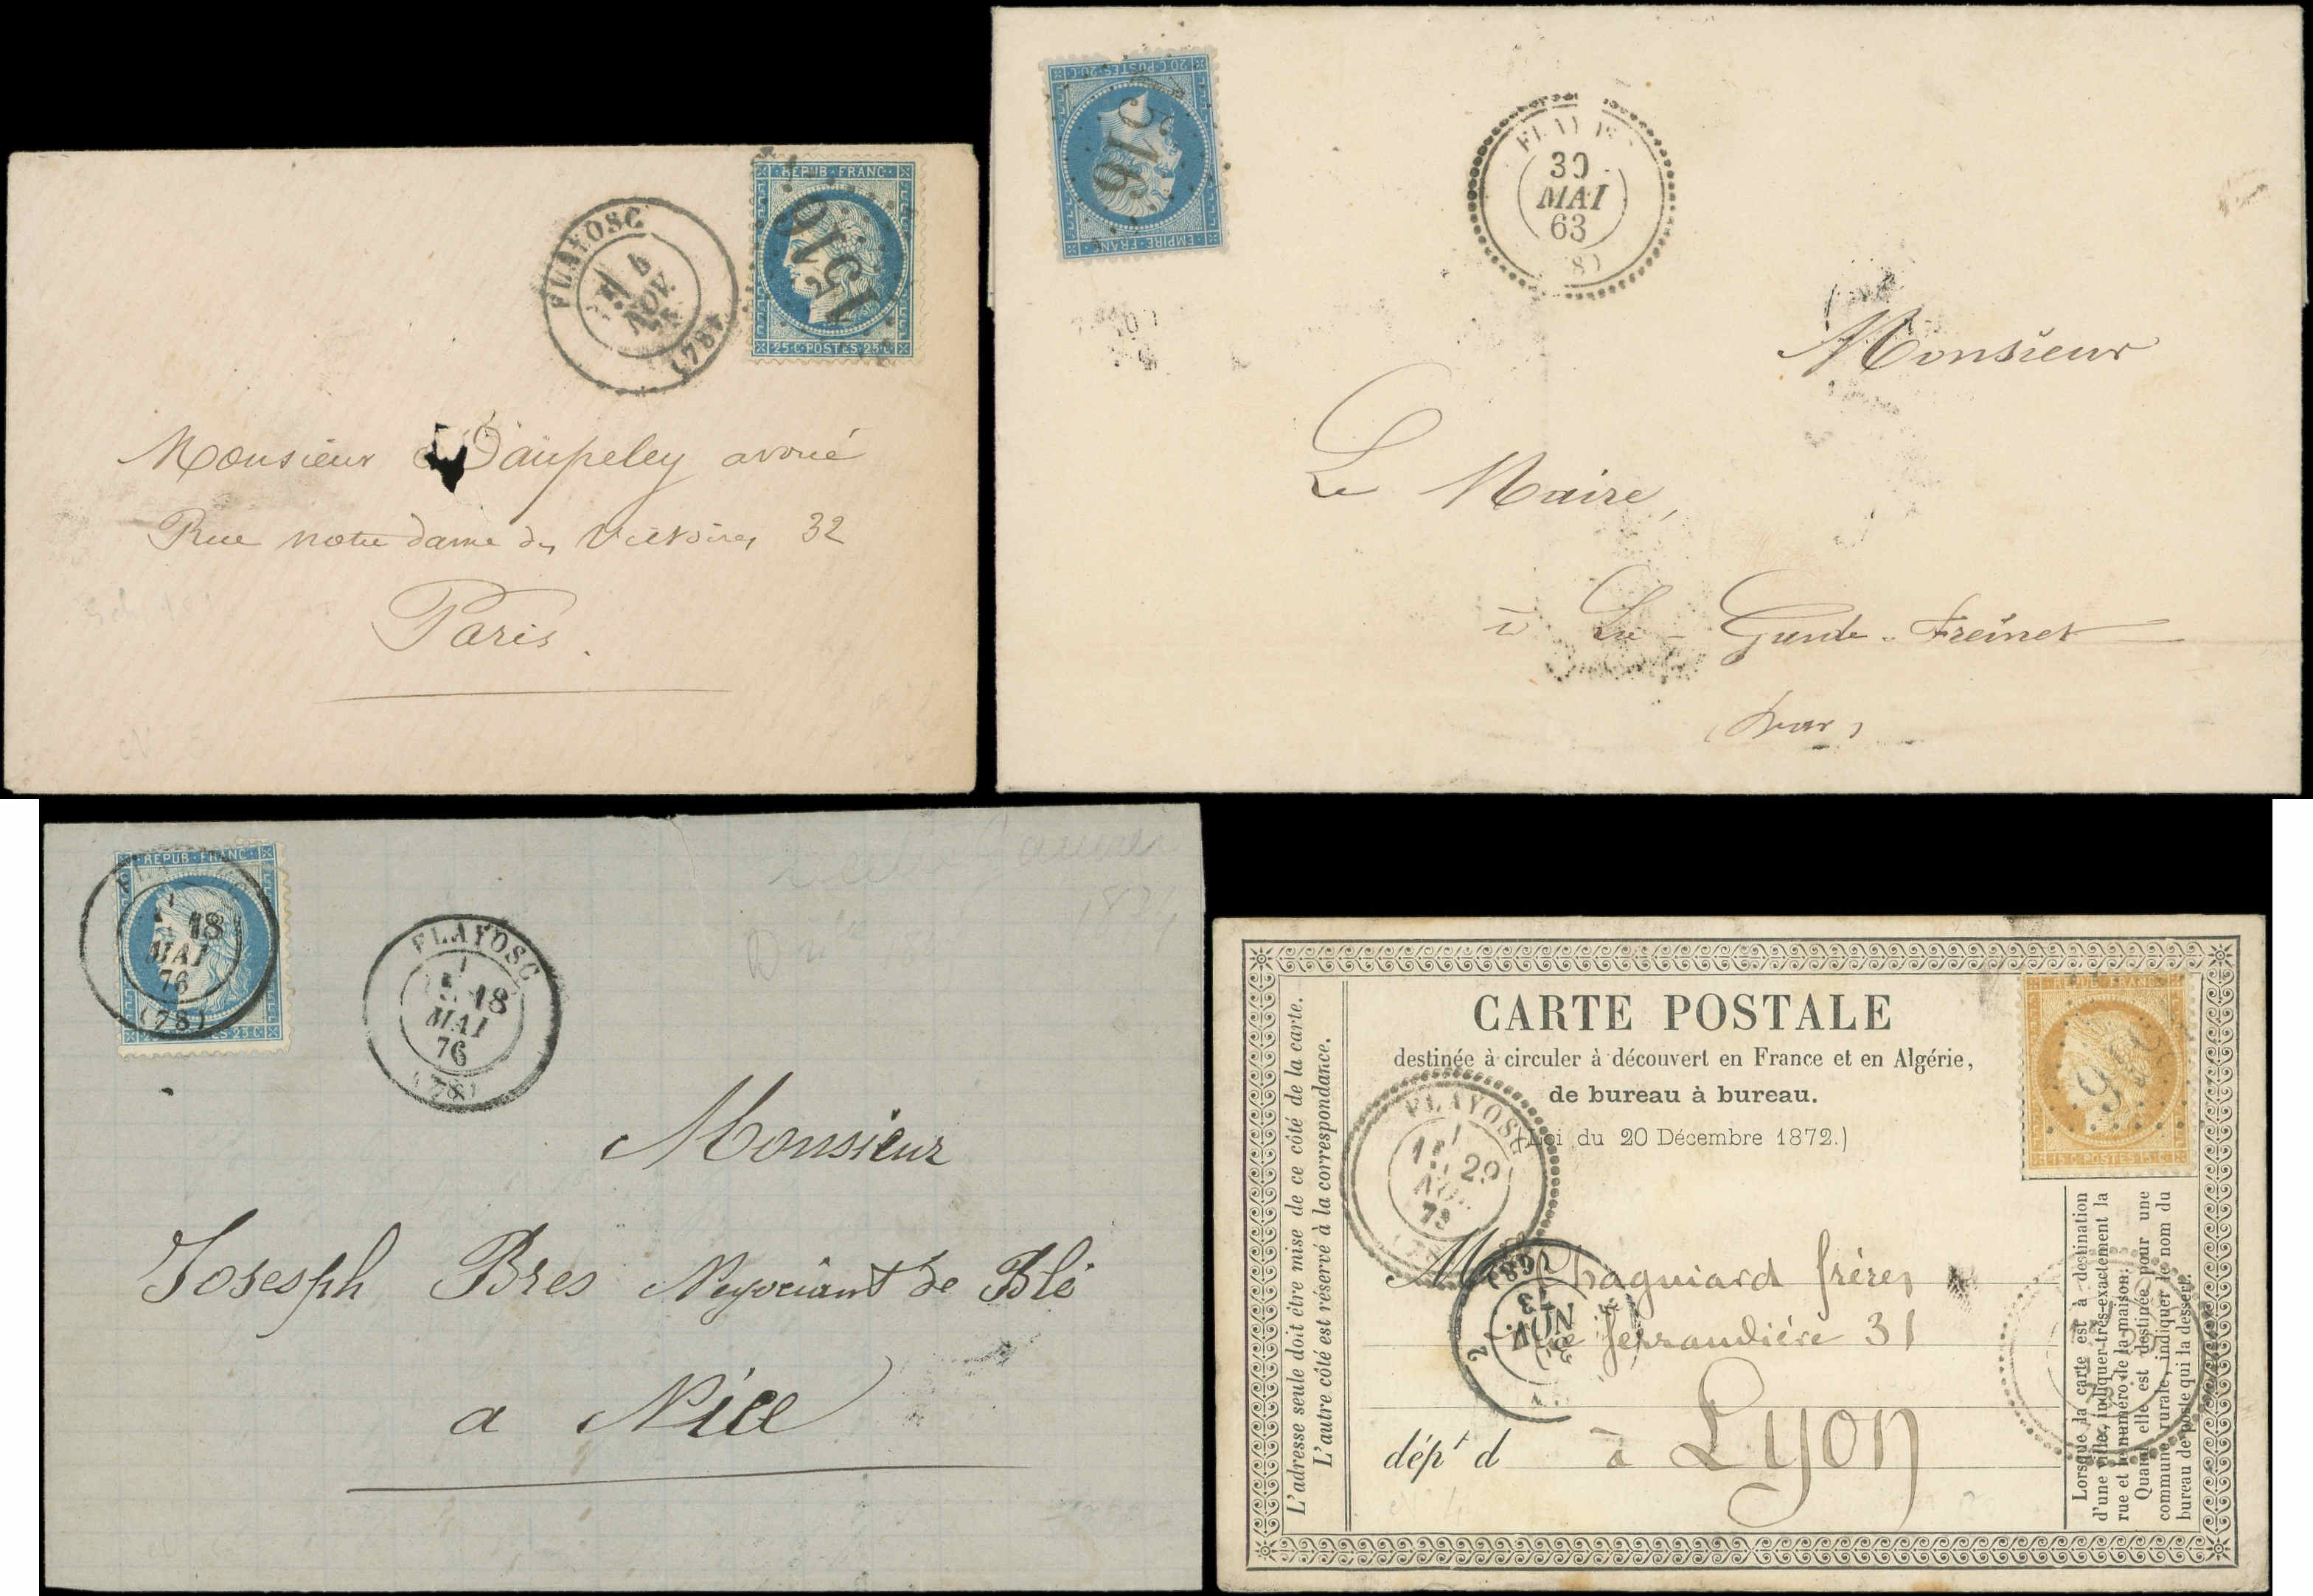 REPUB·FRANC·
1516
25·C·POSTES·25·C·
FLAYOSC
4
NOV.
(78)
Monsieur Daupeley avoué
Rue notre dame des Victoires 32
Paris.
20·C·POSTES·20·C·
1516
EMPIRE·FRANC·
30
MAI
63
Monsieur
Le Maire,
à La Garde-Freinet
(Var)
REPUB·FRANC·
18
MAI
76
(78)
FLAYOSC
18
MAI
76
(78)
Monsieur
Joseph Bres Negociant de Blé
a Nice
CARTE POSTALE
destinée à circuler à découvert en France et en Algérie,
de bureau à bureau.
(Loi du 20 Décembre 1872.)
L'adresse seule doit être mise de ce côté de la carte.
L'autre côté est réservé à la correspondance.
15·C·POSTES·15·C·
FLAYOSC
29
NOV.
73
(68)
73
NOV.
Chaguiard frères
Rue Ferrandière 31
dépt d à Lyon
Lorsque la carte est à destination
d'une ville, indiquer très-exactement la
rue et le numéro de la maison.
Quand elle est destinée pour une
commune rurale, indiquer le nom du
bureau de poste qui la dessert.